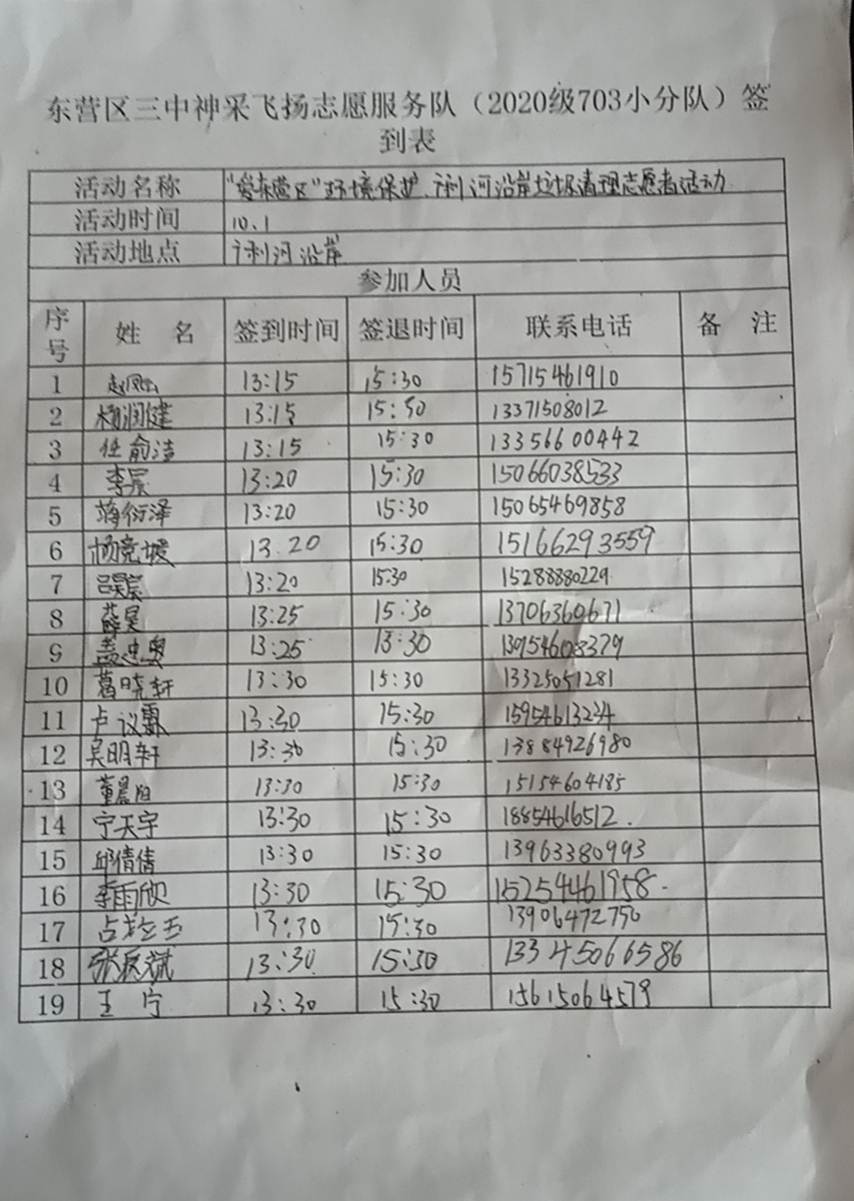 东营区三中神采飞扬志愿服务队（2020级703小分队）签
到表
活动名称 “爱东营区”环境保护、广利河沿岸垃圾清理志愿者活动
活动时间 10.1
活动地点 广利河沿岸
参加人员
序号 姓 名 签到时间 签退时间 联系电话 备 注
1 13:15 15:30 15715461910
2 杨润健 13:15 15:30 13371508012
3 任俞洁 13:15 15:30 13356600442
4 李宸 13:20 15:30 15066038533
5 蒋衍泽 13:20 15:30 15065469858
6 杨竞媛 13.20 15:30 15166293559
7 吕昊宸 13:20 15:30 15288880229
8 薛昊 13:25 15:30 13706360671
9 13:25 13:30 13954608379
10 葛晓轩 13:30 15:30 13325051281
11 卢议霖 13:30 15:30 15954613234
12 吴明轩 13:30 15:30 13884926980
13 董晨阳 13:30 15:30 15154604185
14 宁天宇 13:30 15:30 18854616512.
15 邱倩倩 13:30 15:30 13963380993
16 李雨欣 13:30 15:30 15254461958.
17 13:30 15:30 13906472750
18 张辰斌 13:30 15:30 13345066586
19 王宁 13:30 15:30 15615064579